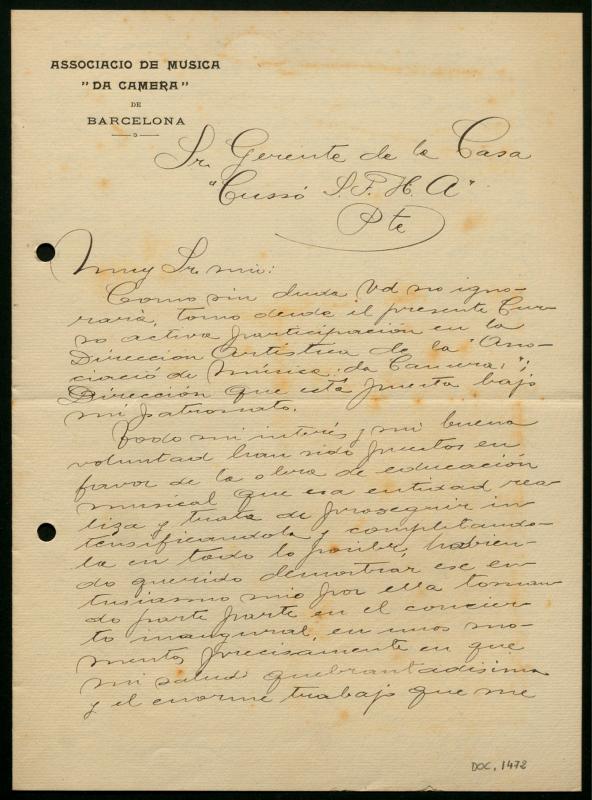 ASSOCIACIO DE MUSICA
"DA CAMERA"
DE
BARCELONA
Sr. Gerente de la Casa
"Cussó S.F.H.A"
Pte
Muy Sr. mio:
Como sin duda Vd no igno-
rará, tomo desde el presente Cur-
so activa participación en la
Dirección Artística de la "Asso-
ciació de Música da Camera";
Dirección que está puesta bajo
mi patronato.
Todo mi interés y mi buena
voluntad han sido puestos en
favor de la obra de educación
musical que esa entidad rea-
liza y trata de proseguir in
tensificandola y completando-
la en todo lo posible, habien-
do querido demostrar ese en-
tusiasmo mio por ella toman-
do parte parte en el concier-
to inaugural, en unos mo-
mentos precisamente en que
mi salud quebrantadisima
y el enorme trabajo que me
DOC. 1472